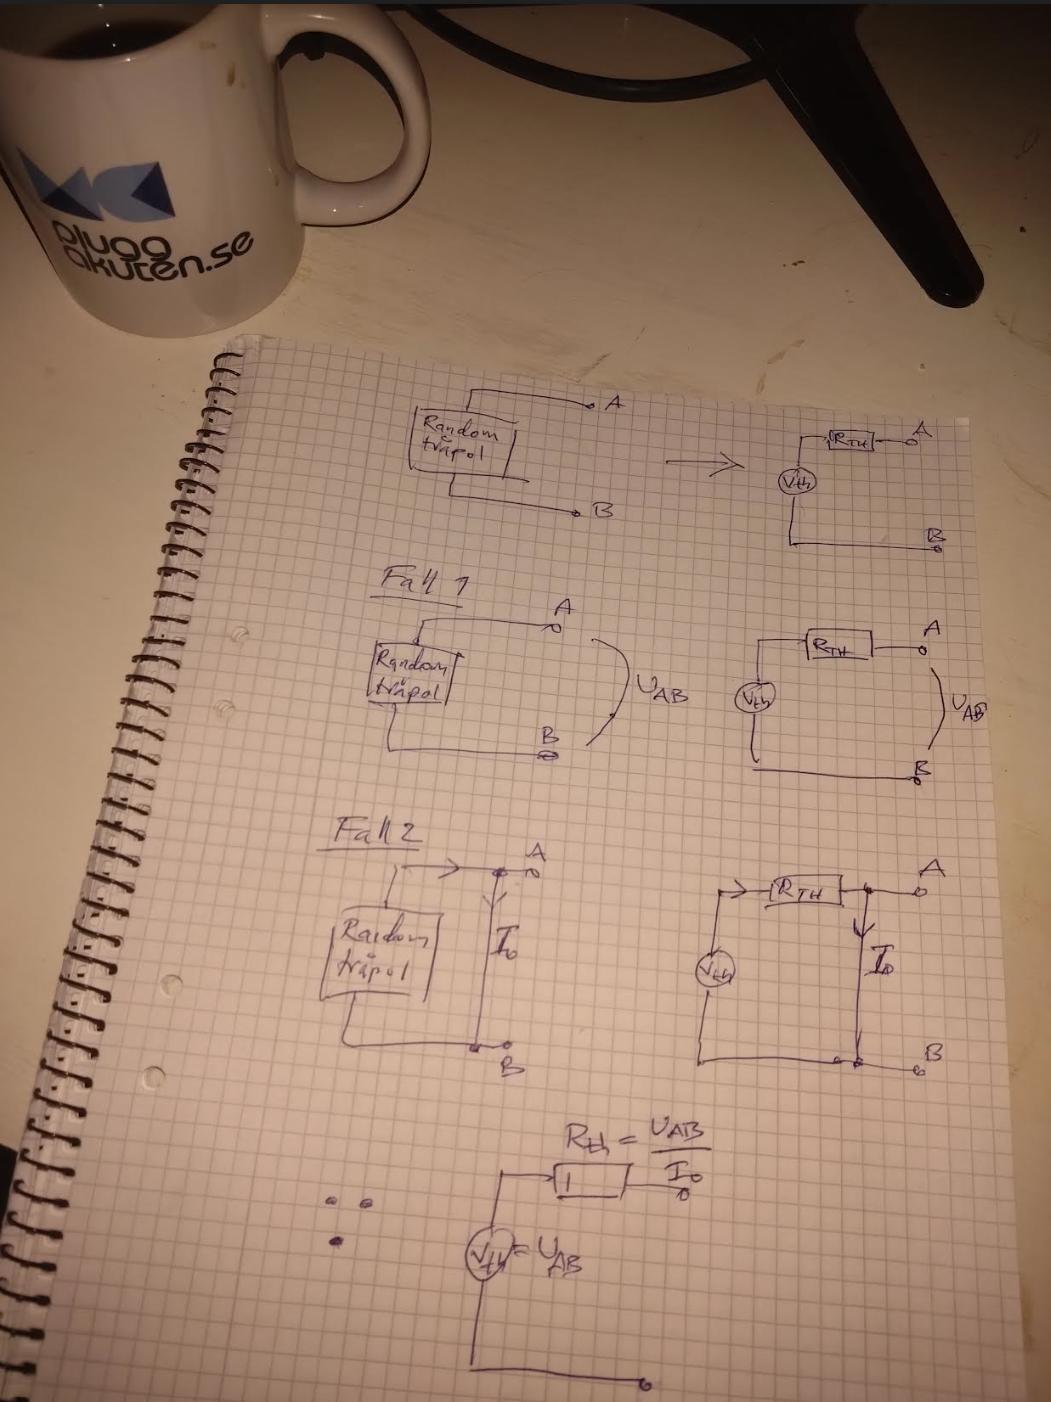 plugg
akuten.se
A
Random
tvåpol
B
RTH
A
Vth
B
Fall 1
A
Random
tvåpol
UAB
B
RTH
A
Vth
UAB
B
Fall 2
A
Random
tvåpol
I0
B
RTH
A
Vth
I0
B
Rth = UAB
I0
Vth = UAB